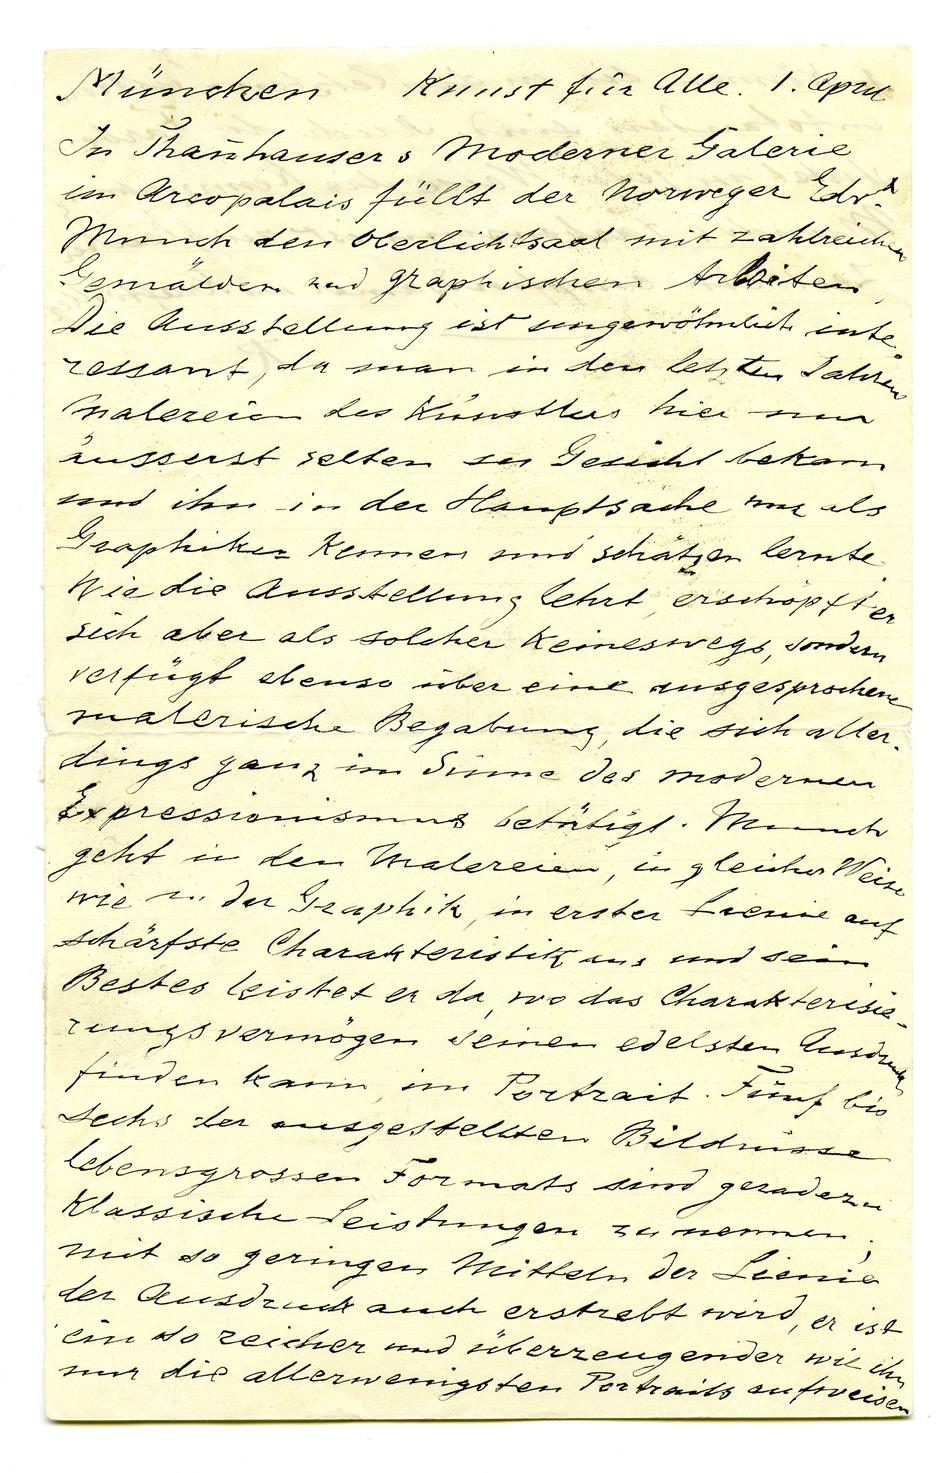 München Kunst für Alle. 1. April
In Than̄hausers Moderner Galerie
im Arcopalais füllt der Norweger Edv.d
Munch den Oberlichtsaal mit zahlreichen
Gemälden und graphischen Arbeiten.
Die Ausstellung ist ungewöhnlich inte-
ressant, da man in den letzten Jahren
Malereien des Künstlers hier nur
äusserst selten zu Gesicht bekam
und ihn in der Hauptsache nur als
Graphiker kennen und schätzen lernte.
Wie die Ausstellung lehrt, erschöpft er
sich aber als solcher keineswegs, sondern
verfügt ebenso über eine ausgesprochene
malerische Begabung, die sich aller-
dings ganz im Sinne des modernen
Expressionismus betätigt. Munch
geht in den Malereien, in gleicher Weise
wie in der Graphik, in erster Lienie auf
schärfste Charakteristik aus und sein
Bestes leistet er da, wo das Charakterisie-
rungsvermögen seinen edelsten Ausdruck
finden kann, im Portrait. Fünf bis
sechs der ausgestellten Bildnisse
lebensgrossen Formats sind geradezu
klassische Leistungen zu nennen;
mit so geringen Mitteln der Lienie
der Ausdruck auch erstrebt wird, er ist
ein so reicher und überzeugender wie ihn
nur die allerwenigsten Portraits aufweisen